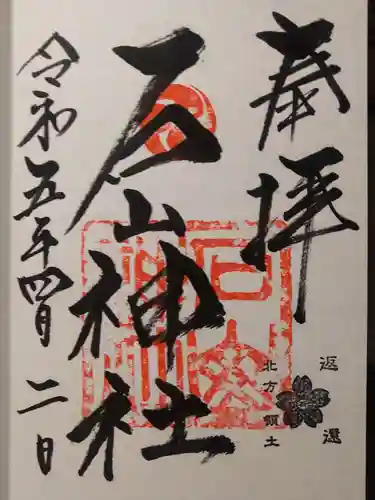 奉拝
北方領土
返還
石山神社
令和五年四月二日